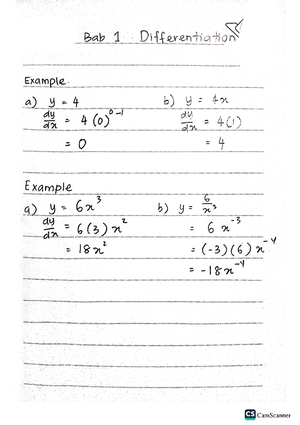 Bab 1 : Differentiation
Example.
a) y = 4
dy/dx = 4(0)^(0-1)
= 0
b) y = 4x
dy/dx = 4(1)
= 4
Example
a) y = 6x³
dy/dx = 6(3)x²
= 18x²
b) y = 6/x³
= 6x⁻³
= (-3)(6)x⁻⁴
= -18x⁻⁴
CS CamScanner